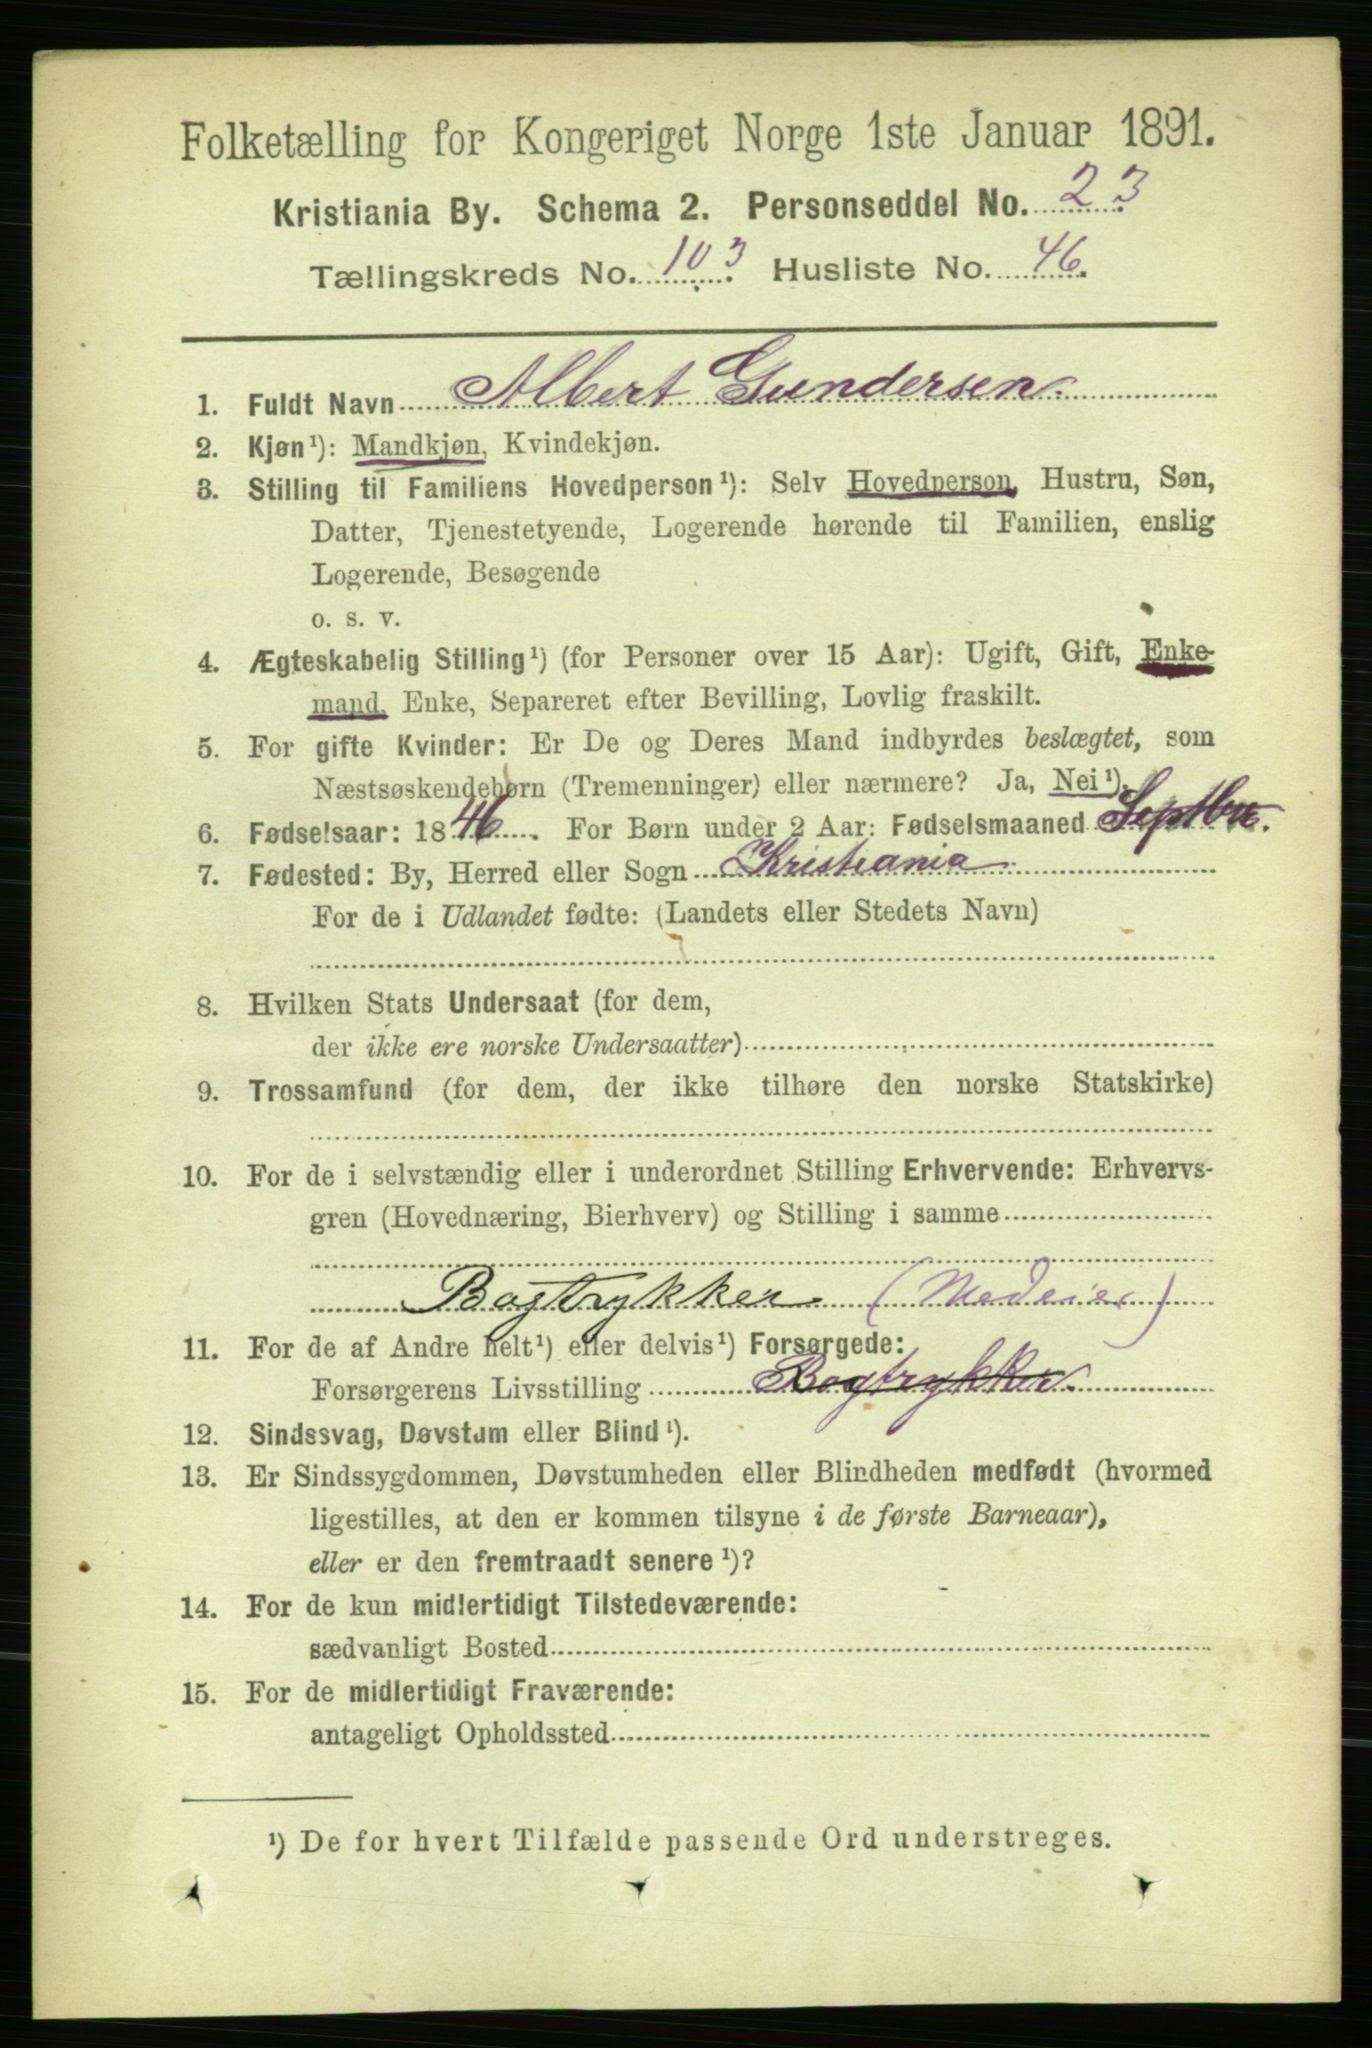 Folketælling for Kongeriget Norge 1ste Januar 1891.
Kristiania By. Schema 2. Personseddel No. 23
Tællingskreds No. 103. Husliste No. 46.
1. Fuldt Navn Albert Gundersen.
2. Kjøn¹): Mandkjøn, Kvindekjøn.
3. Stilling til Familiens Hovedperson¹): Selv Hovedperson, Hustru, Søn,
Datter, Tjenestetyende, Logerende hørende til Familien, enslig
Logerende, Besøgende
o. s. v.
4. Ægteskabelig Stilling¹) (for Personer over 15 Aar): Ugift, Gift, Enke-
mand, Enke, Separeret efter Bevilling, Lovlig fraskilt.
5. For gifte Kvinder: Er De og Deres Mand indbyrdes beslægtet, som
Næstsøskendebørn (Tremenninger) eller nærmere? Ja, Nei¹).
6. Fødselsaar: 1846. For Børn under 2 Aar: Fødselsmaaned Septbr.
7. Fødested: By, Herred eller Sogn Kristiania
For de i Udlandet fødte: (Landets eller Stedets Navn)
8. Hvilken Stats Undersaat (for dem,
der ikke ere norske Undersaatter)
9. Trossamfund (for dem, der ikke tilhøre den norske Statskirke)
10. For de i selvstændig eller i underordnet Stilling Erhvervende: Erhvervs-
gren (Hovednæring, Bierhverv) og Stilling i samme
Bogtrykker (Medeier)
11. For de af Andre helt¹) eller delvis¹) Forsørgede:
Forsørgerens Livsstilling Bogtrykker.
12. Sindssvag, Døvstum eller Blind¹).
13. Er Sindssygdommen, Døvstumheden eller Blindheden medfødt (hvormed
ligestilles, at den er kommen tilsyne i de første Barneaar),
eller er den fremtraadt senere¹)?
14. For de kun midlertidigt Tilstedeværende:
sædvanligt Bosted
15. For de midlertidigt Fraværende:
antageligt Opholdssted
¹) De for hvert Tilfælde passende Ord understreges.